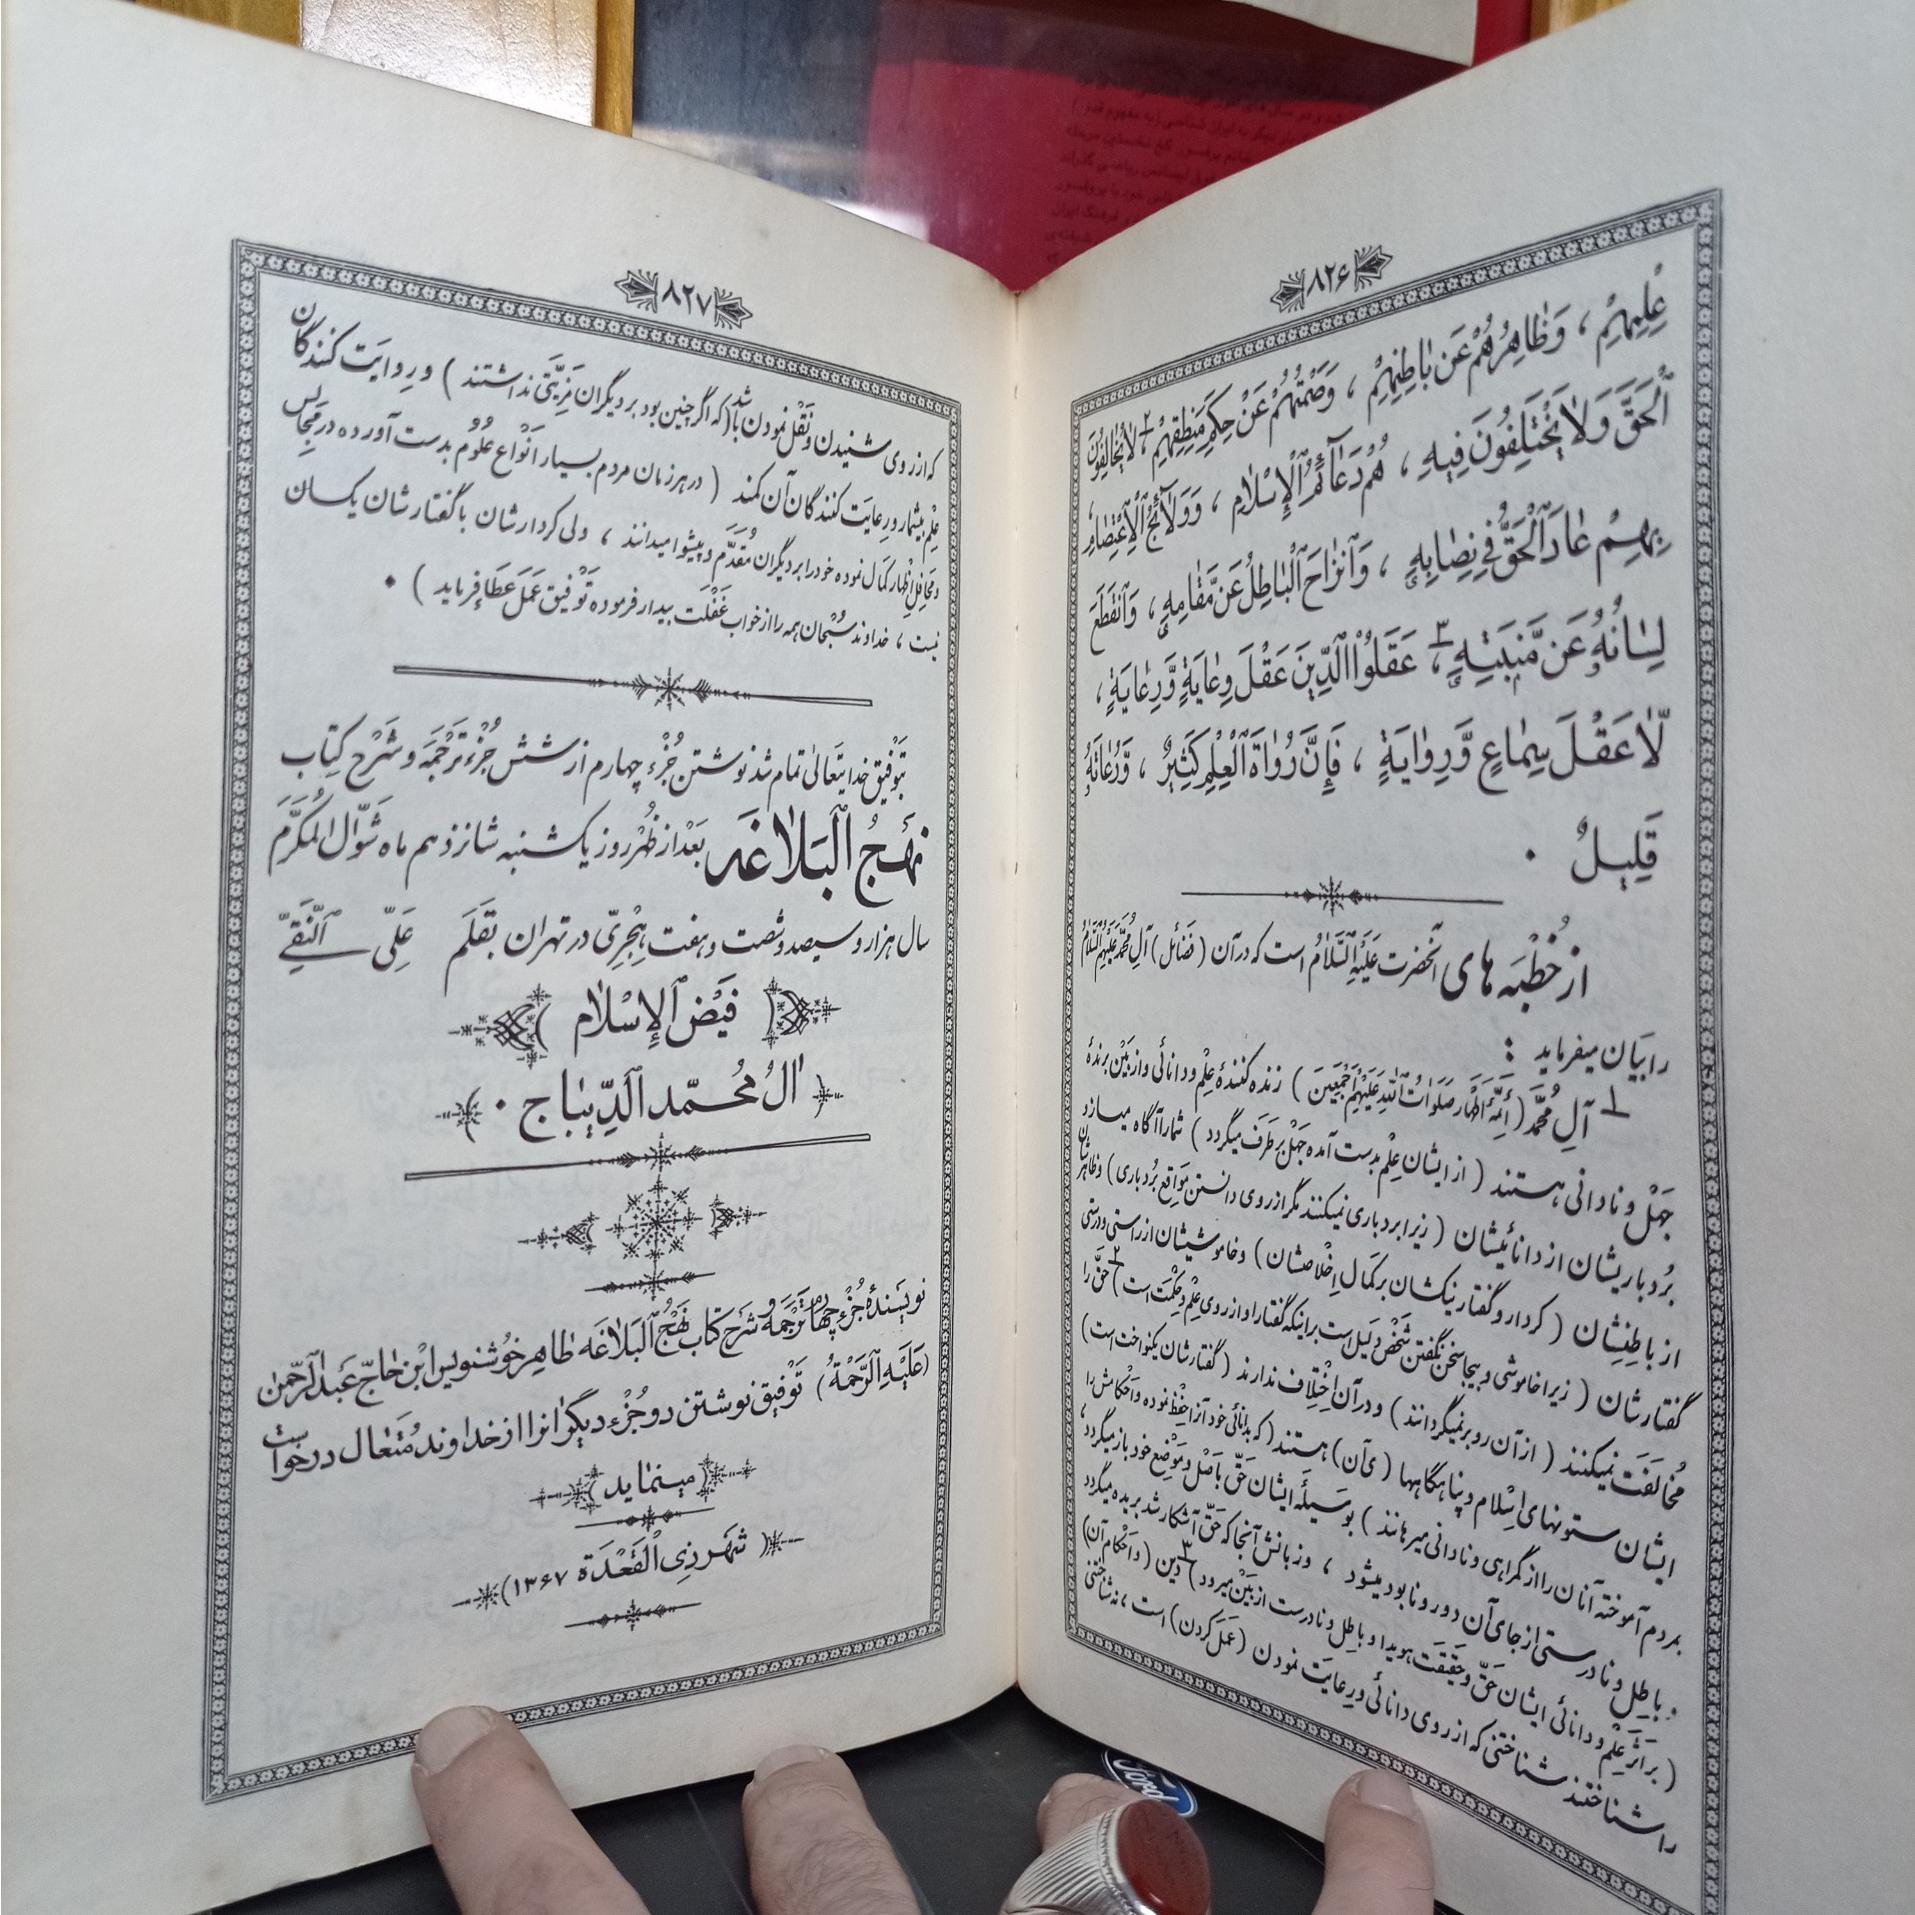 ۸۲۶
عِلْمِهِمْ ، وَظَاهِرُهُمْ عَنْ بَاطِنِهِمْ ، وَصَمْتُهُمْ عَنْ حِكَمِ مَنْطِقِهِمْ ۲ لَا يُخَالِفُونَ
الْحَقَّ وَلَا يَخْتَلِفُونَ فِيهِ ، هُمْ دَعَائِمُ الْإِسْلَامِ ، وَوَلَائِجُ الْاِعْتِصَامِ ،
بِهِمْ عَادَ الْحَقُّ فِي نِصَابِهِ ، وَانْزَاحَ الْبَاطِلُ عَنْ مَّقَامِهِ ، وَانْقَطَعَ
لِسَانُهُ عَنْ مَّنْبِتِهِ ۳ ، عَقَلُوا الدِّينَ عَقْلَ وِعَايَةٍ وَّرِعَايَةٍ ،
لَّا عَقْلَ سِمَاعٍ وَّرِوَايَةٍ ، فَإِنَّ رُوَاةَ الْعِلْمِ كَثِيرٌ ، وَّرُعَاتَهُ
قَلِيلٌ .
از خُطْبَه های آنحضرت عَلَيْهِ السَّلَامُ است که در آن ( فَضائل ) آلِ مُحَمَّد عَلَيْهِمُ السَّلَامُ
را بَيان میفرماید :
۱ آلِ مُحَمَّد ( أَئِمَّهٔ أَطْهار صَلَوَاتُ اللَّهِ عَلَيْهِمْ أَجْمَعِينَ ) زنده کنندهٔ عِلْم و دانائی و از بَيْن برندهٔ
جَهْل و نادانی هستند ( از ایشان عِلْم بدست آمده جَهْل بر طَرَف میگردد ) شما را آگاه میسازد
بُردباریشان از دانائیشان ( زیرا بردباری نمیکنند مگر از روی دانستن مَواقِع بُردباری ) و ظاهرشان
از باطِنِشان ( کردار و گفتار نیکشان بر کَمال إِخْلاصشان ) و خاموشیشان از راستی و درستی
گفتارشان ( زیرا خاموشی و بیجا سخن نگفتن شَخْص دَلیل است بر اینکه گفتار او از روی عِلْم و حِکْمَت است ) ۲ حَقّ را
مُخالَفَت نمیکنند ( از آن رو بر نمیگردانند ) و در آن اِخْتِلاف ندارند ( گفتارشان یکنواخت است )
ایشان ستونهای اِسْلام و پناهگاهها ( ی آن ) هستند ( که بدانائی خود آنرا حِفْظ نموده و اَحْکامش را
بمردم آموخته آنان را از گمراهی و نادانی میرهانند ) بوسیلَه ایشان حَقّ باَصْل و مَوْضِع خود باز میگردد ،
و باطِل و نادرستی از جای آن دور و نابود میشود ، و زبانش آنجا که حَقّ آشکار شد بریده میگردد
( بر اَثَر عِلْم و دانائی ایشان حَقّ و حَقیقَت هویدا و باطِل و نادرست از بَيْن میرود ) ۳ دین ( و اَحْکام آن )
را شناختند شناختنی که از روی دانائی و رِعایَت نمودن ( عَمَل کردن ) است ، نه شناختنی
۸۲۷
که از روی شنیدن و نَقْل نمودن باشد ( که اگر چنین بود بر دیگران مَزِیَّتی نداشتند ) و رِوایَت کنندگان
عِلْم بیشمار و رِعایَت کنندگان آن کمند ( در هر زمان مردم بسیار اَنْواع عُلُوم بدست آورده در مَجالِس
و مَحافِل اِظْهار کَمال نموده خود را بر دیگران مُقَدَّم و پیشوا میدانند ، ولی کردارشان با گفتارشان یکسان
نیست ، خداوند سُبْحان همه را از خواب غَفْلَت بیدار فرموده تَوْفیق عَمَل عَطاء فرماید ) .
بتَوْفیق خدایتَعالی تمام شد نوشتن جُزْء چهارم از شش جُزْء تَرْجَمَه و شَرْح کِتاب
نَهْجُ الْبَلَاغَه بَعْد از ظُهْر روز یکشنبه شانزدهم ماه شَوّال الْمُکَرَّم
سال هزار و سیصد و شصت و هفت هِجْرِیّ در تهران بقَلَم عَلِیّ النَّقِیّ
فَيْضُ الْإِسْلَام
( اٰلُ مُحَمَّد الدِّيبَاج . )
نویسندهٔ جُزْء چهارم تَرْجَمَه و شَرْح کتاب نَهْجُ الْبَلَاغَه طاهِر خوُشنویس ابْن حاجّ عَبد الرَّحمٰن
( عَلَيْهِ الرَّحْمَةُ ) تَوْفیق نوشتن دو جُزْء دیگر را نیز از خداوند مُتَعال درخواست
( مینماید )
( شَهْر ذِی الْقَعْدَة ۱۳۶۷ )
Ford